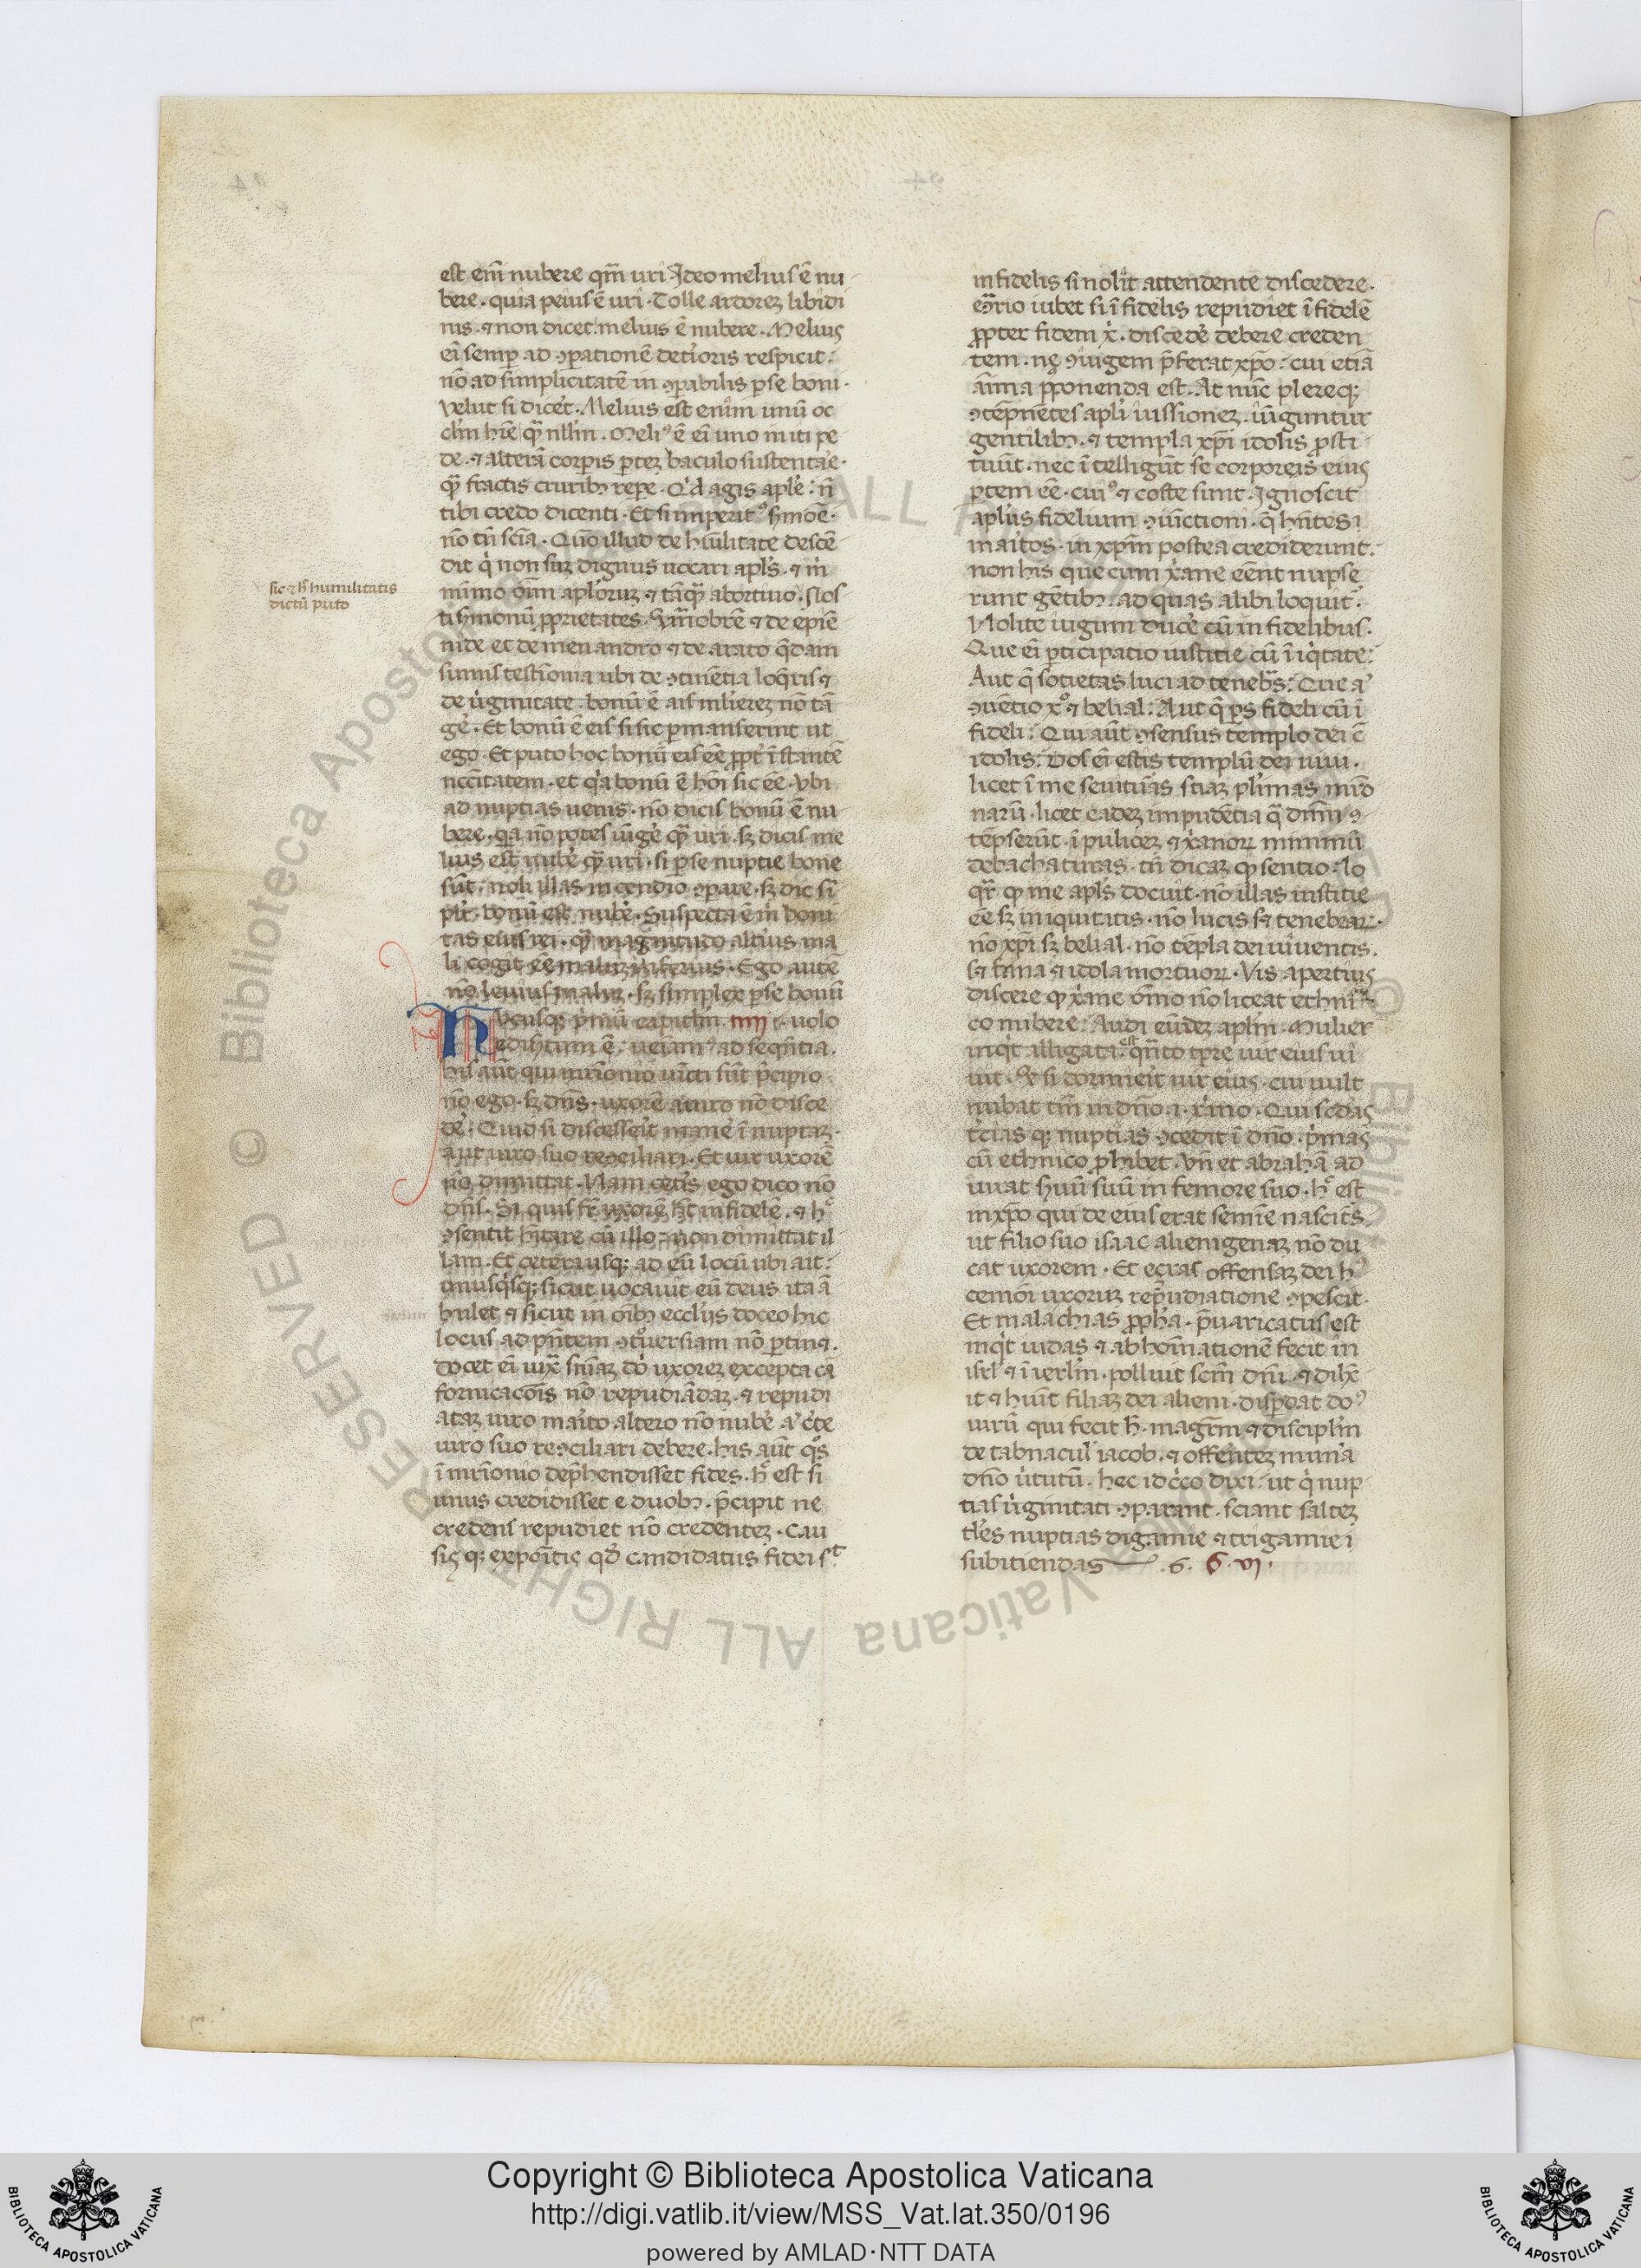 est enī nubere qm̄ uri. Ideo melius ē nu
bere. quia peius ē uri. Tolle ardorez libidi
nis. ⁊ non dicet melius ē nubere. Melius
eī semꝑ ad ꝯꝑationē detioris respicit.
nō ad simplicitatē in ꝯꝑabilis ꝑ se boni.
velut si dicet. Melius est enim unū oc
cl'm hr̄e qͣ̄ null'm. Meliꝰ ē eī uno initi pe
de. ⁊ alterā corꝑis ꝑtez baculo sustentare.
qͣ̄ fractis cruribꝫ repe. Qͥd agis aple. n̄
tibi credo dicenti. Et si imperitꝰ ẜmōe.
nō tn̄ scīa. Quō illud de hūilitate descē
dit qͥ non suz dignus uocari apl's. ⁊ m̄
minimo oīm apl'oruz. ⁊ tāqͣ̄ abortiuo. Nos
ti ẜmonū ꝓprietates. Vn̄
nide et de menandro ⁊ de arato qͣdam
sumis testīonia ubi de ꝯtinētia loqͣris ⁊
de uͥginitate. bonū ē ais mlierez nō tā
gē. Et bonū ē eis si sic ꝑmanserint ut
ego. Et puto hoc bonū eis eē ꝓpt' īstantē
nccītatem. et qͥa bonū ē hōi sic eē. Vbi
ad nuptias uenis. nō dicis bonū ē nu
bere. qͥa nō potes iūgē qͣ̄ uri. sꝫ dicis me
lius est nubē qͣ̄ uri. si ꝑ se nuptie bone
sūt. noli illas incendio ꝯꝑare. sꝫ dic sī
plr̄. bonū est nubē. Suspecta ē m̄ boni
tas eius rei. qͣ̄ magnitudo altius ma
li cogit eē maluz inferius. Ego autē
nō leuius maluz. sꝫ simplex ꝑ se bonū
Hucusqꝫ pͥmū capitl'm. uolo
ad seqn̄tia.
his aūt qui mr̄imonio iūcti sūt p̄cipio
nō ego. sꝫ dn̄s. uxorē a uiro nō disce
dē. Quid si discesserit manē īnuptaz.
aut uiro suo reꝯciliari. Et uir uxorē
nō dimittat. Nam cetīs ego dico nō
dn̄s. Si quis fr̄ uxorē h̄t infidelē. ⁊ hͨ
ꝯsentit hītare cū illo. non dimittat il
lam. Et cetera usqꝫ ad eū locū ubi ait.
unusqͥsqꝫ sicut uocauit eū deus ita ā
bulet ⁊ sicut in oībꝫ eccl'ijs doceo hic
locus ad pn̄tem ꝯtͦuersiam nō ꝑtinꝫ.
docet eī iuxͣ sn̄iaz dn̄i uxorez excepta cā
fornicacōis nō repudiādaz. ⁊ repudi
ataz uiro maͥto altero nō nubē aꝰ cͤte
uiro suo reꝯciliari debere. his aūt qͦs
ī mr̄imonio dep̄hendisset fides. hͨ est si
unus credidisset e duobꝫ. p̄cipit ne
credens repudiet nō credentez. Cau
sisqꝫ expoītis qd' candidatus fidei sͭ
sic ⁊ h̄ humilitatis
dictū puto
infidelis si nolit attendente discedere.
eͨͣrio iubet si īfidelis repudiet īfidelē
ꝓpter fidem xͥ. discedē debere creden
tem. ne ꝯiugem p̄ferat xp̄o. cui etiā
aīma p̄ponenda est. At nūc plereqꝫ
ꝯtēpnētes apl'i iussionez. iūguntur
gentilibꝫ. ⁊ templa xp̄i idolis ꝓsti
tuūt. nec ītelligūt se corporeis eius
ꝑtem eē. cuiꝰ ⁊ coste sunt. Ignoscit
apl'us fidelium ꝯiūctioni. q̄ hn̄tes
maͥtos. in xp̄m postea crediderunt.
non his que cum xͥane eēnt nupse
runt gētibꝫ. ad quas alibi loquit'.
Nolite iugum ducē cū infidelibus.
Que eī ꝑticipatio iustitie cū īiqͥtate.
Aut q̄ societas luci ad tenebͣs. Que aꝰ
ꝯuētio xͦ ⁊ belial. Aut q̄ ꝑs fideli cū ī
fideli. Qui aūt ꝯsensus templo dei c̄
idolis. Vos eī estis templū dei uiui.
licet ī me seuituͣas sciaz pl'imas mͣro
narū. licet eadez impudētia qͣ dn̄m ꝯ
tēpserūt. ī pulicez ⁊ xͥanoꝝ minimū
debachaturas. tn̄ dicaz qͦ sentio. lo
qͣr qͦ me apl's docuit. nō illas iustitie
eē sꝫ iniquitatis. nō lucis sꝫ tenebraꝝ.
nō xp̄i sꝫ belial. nō tēpla dei uiuentis.
sꝫ fana ⁊ idola mortuoꝝ. Vis apertius
discere qͦ xͥane om̄ino nō liceat ethni
co nubere. Audi eūdez apl'm. Mulier
inqͥt alligata est qn̄to tp̄re uir eius ui
uit. Qͦ si dormieit uir eius. cui uult
nubat tm̄ in dn̄o .i. xͥano. Qui scd'as
tͨcias qꝫ nuptias ꝯcedit ī dn̄o. pͥmas
cū ethnico ꝓhibet. Vn̄ et abrahā ad
iurat ẜuū suū in femore suo. hͨ est
in xp̄o qui de eius erat semīe nasciturꝰ
ut filio suo isaac alienigenaz nō du
cat uxorem. Et ecras offensaz dei hꝰ
cemōi uxoruz rep̄udiatione ꝯpescit.
Et malachias ꝓph̄a. p̄uaricatus est
inqͥt iudas ⁊ abhoīnationē fecit in
isrl' ⁊ ī ierl'm. polluit scm̄ dn̄i ⁊ dilex
it ⁊ hūit filiaz dei alieni. disꝑdat doꝰ
uirū qui fecit h̄. magr̄m ⁊ discipl'm
de tabnacul' iacob. ⁊ offentez munͣa
dn̄o uͥtutū. hec idcͥco dixi. ut qͥ nup
tias uͥginitati ꝯꝑarant. sciant saltez
tl'es nuptias digamie ⁊ trigamie
subitiendas .6. 6. vi.
Copyright © Biblioteca Apostolica Vaticana
http://digi.vatlib.it/view/MSS_Vat.lat.350/0196
powered by AMLAD·NTT DATA
BIBLIOTECA APOSTOLICA VATICANA
BIBLIOTECA APOSTOLICA VATICANA